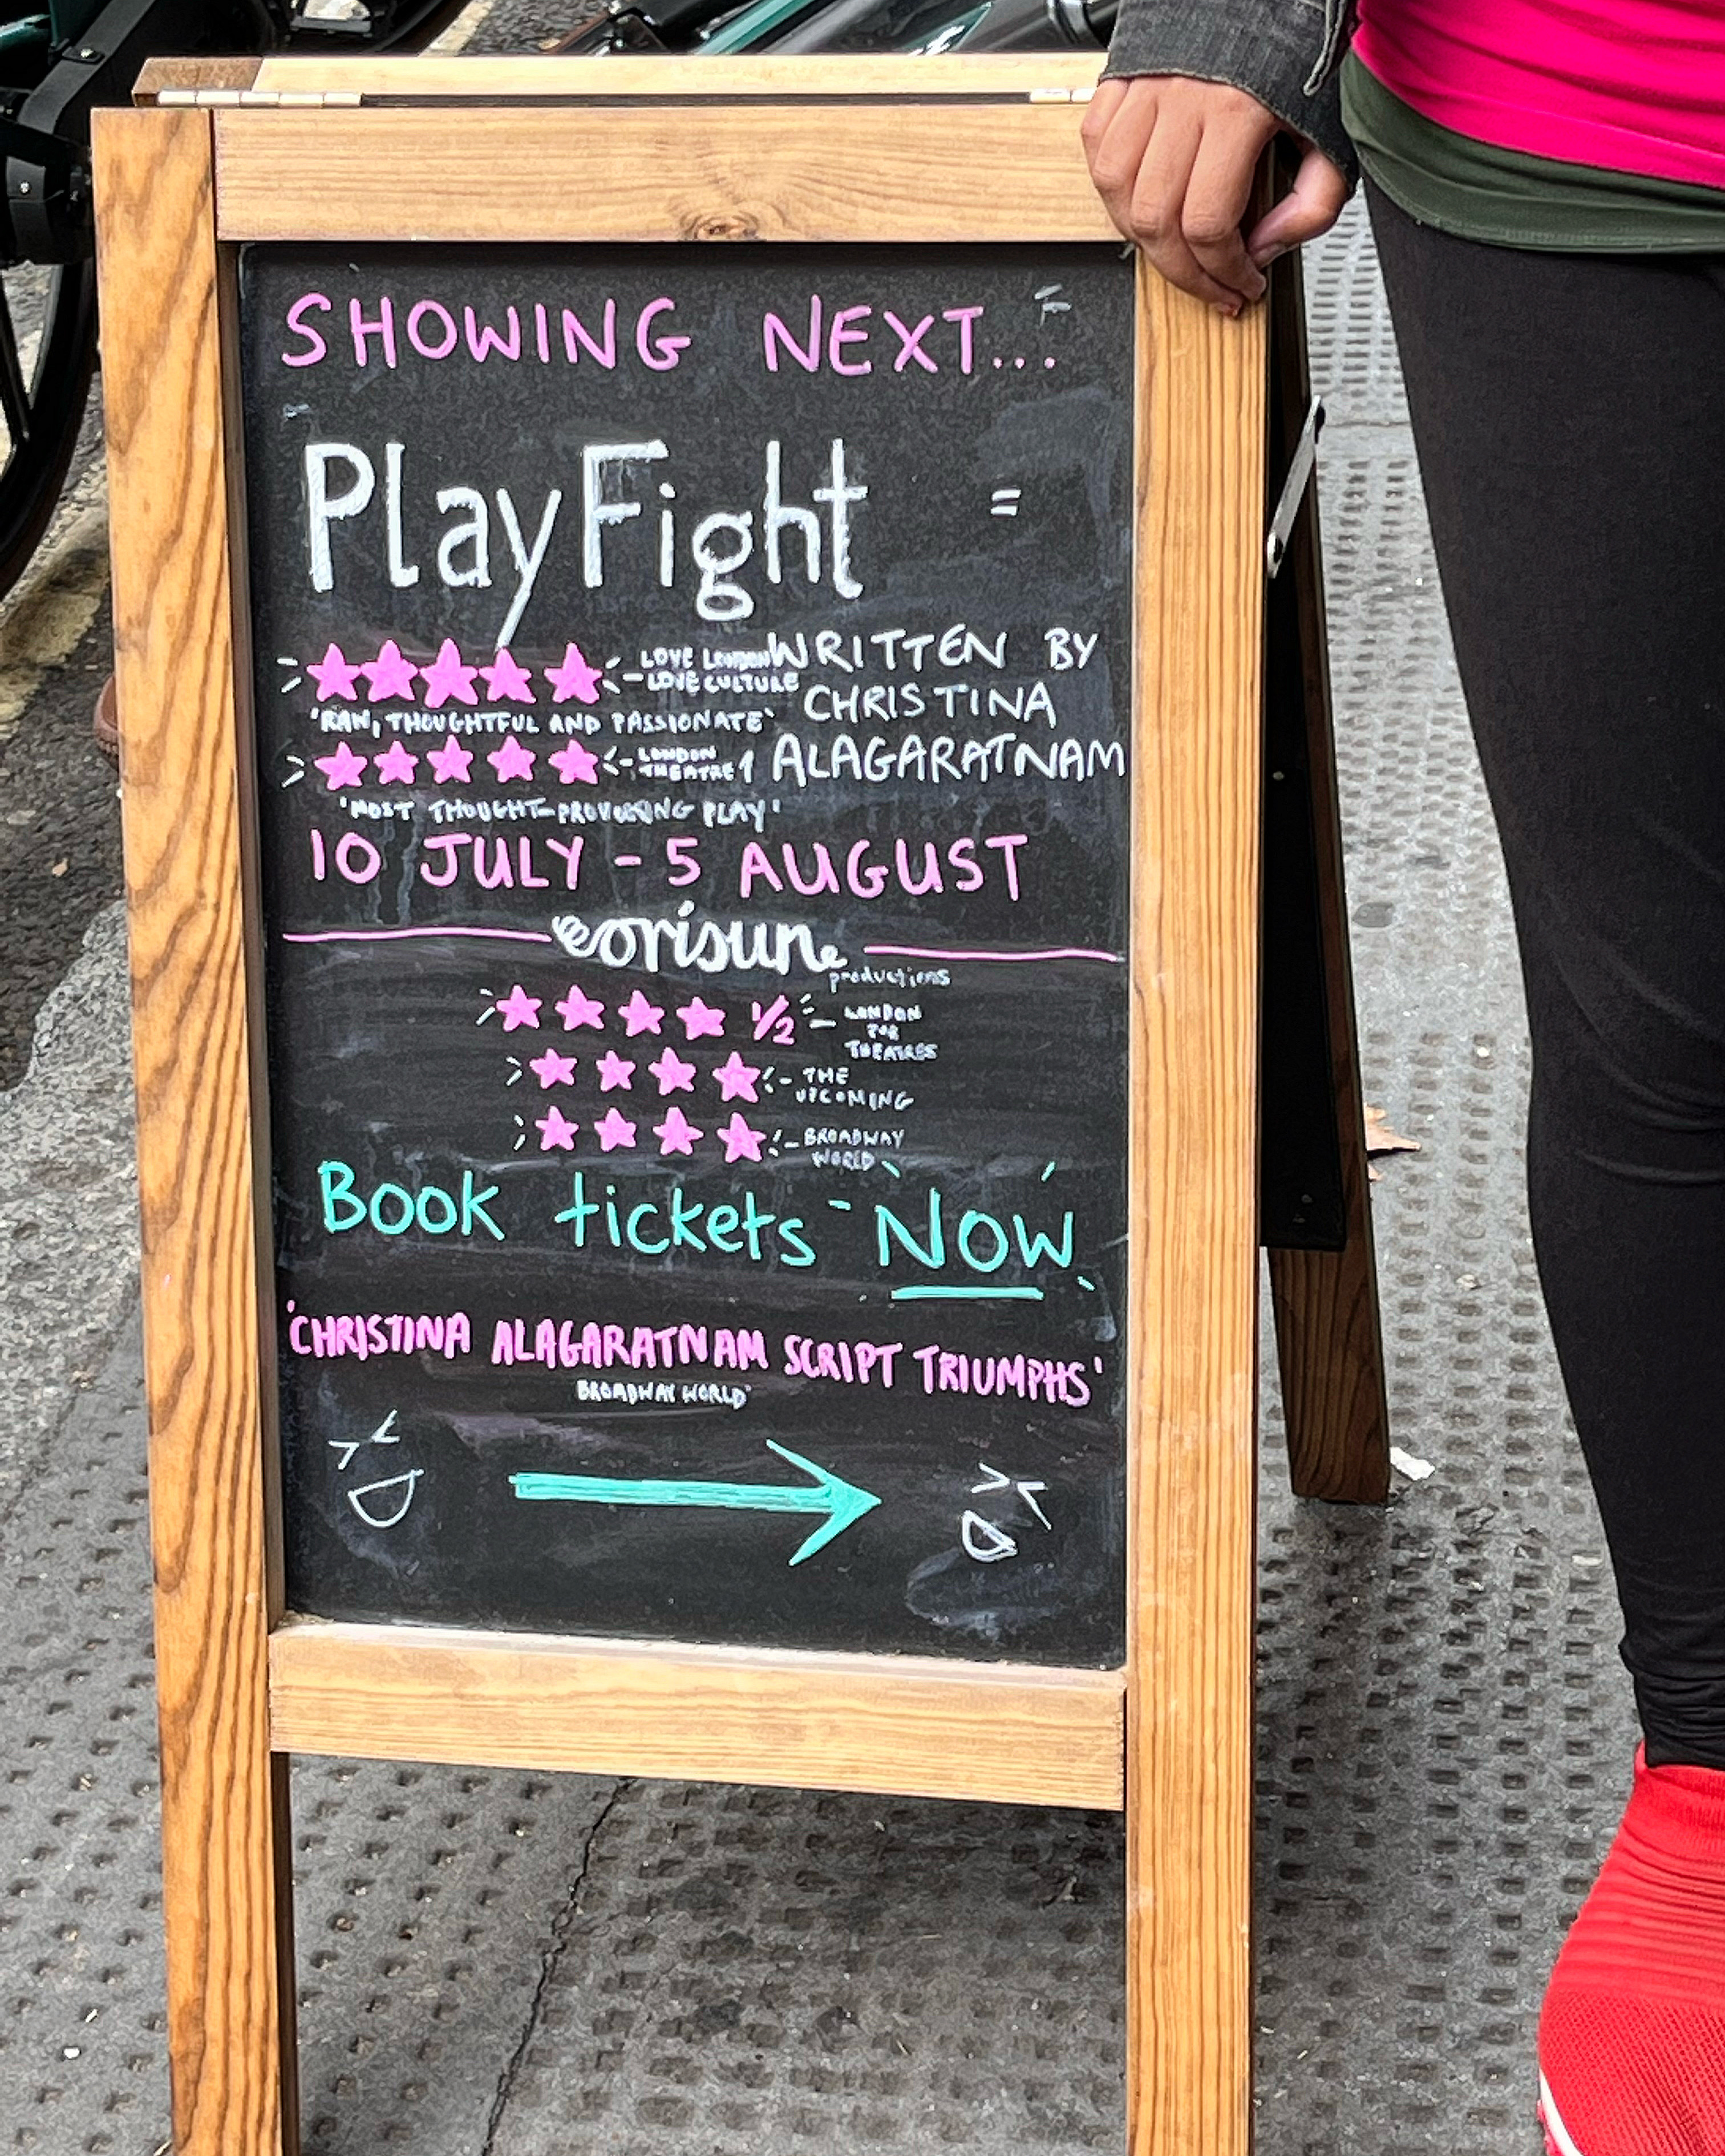 SHOWING NEXT...
PlayFight
WRITTEN BY
CHRISTINA
ALAGARATNAM
★★★★★ - LOVE LONDON
LOVE CULTURE
'RAW, THOUGHTFUL AND PASSIONATE'
★★★★★ - LONDON
THEATRE 1
'MOST THOUGHT-PROVOKING PLAY'
10 JULY - 5 AUGUST
orisun
productions
★★★★ 1/2 - LONDON
FOR
THEATRES
★★★★ - THE
UPCOMING
★★★★ - BROADWAY
WORLD
Book tickets NOW
'CHRISTINA ALAGARATNAM SCRIPT TRIUMPHS'
BROADWAY WORLD'